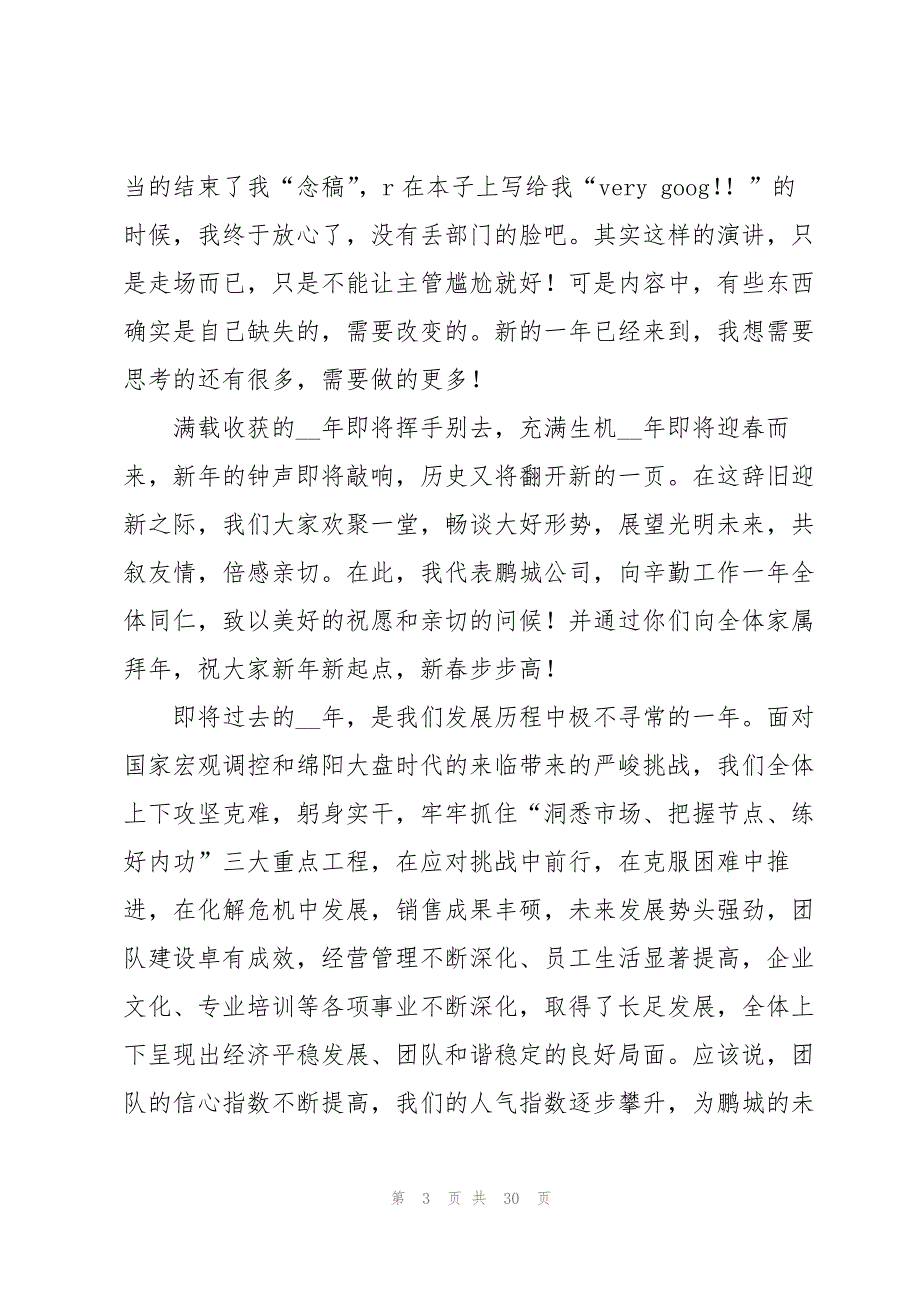 当的结束了我“念稿”，r 在本子上写给我“very goog！！”的
时候，我终于放心了，没有丢部门的脸吧。其实这样的演讲，只
是走场而已，只是不能让主管尴尬就好！可是内容中，有些东西
确实是自己缺失的，需要改变的。新的一年已经来到，我想需要
思考的还有很多，需要做的更多！
满载收获的__年即将挥手别去，充满生机__年即将迎春而
来，新年的钟声即将敲响，历史又将翻开新的一页。在这辞旧迎
新之际，我们大家欢聚一堂，畅谈大好形势，展望光明未来，共
叙友情，倍感亲切。在此，我代表鹏城公司，向辛勤工作一年全
体同仁，致以美好的祝愿和亲切的问候！并通过你们向全体家属
拜年，祝大家新年新起点，新春步步高！
即将过去的__年，是我们发展历程中极不寻常的一年。面对
国家宏观调控和绵阳大盘时代的来临带来的严峻挑战，我们全体
上下攻坚克难，躬身实干，牢牢抓住“洞悉市场、把握节点、练
好内功”三大重点工程，在应对挑战中前行，在克服困难中推
进，在化解危机中发展，销售成果丰硕，未来发展势头强劲，团
队建设卓有成效，经营管理不断深化、员工生活显著提高，企业
文化、专业培训等各项事业不断深化，取得了长足发展，全体上
下呈现出经济平稳发展、团队和谐稳定的良好局面。应该说，团
队的信心指数不断提高，我们的人气指数逐步攀升，为鹏城的未
第 3 页 共 30 页